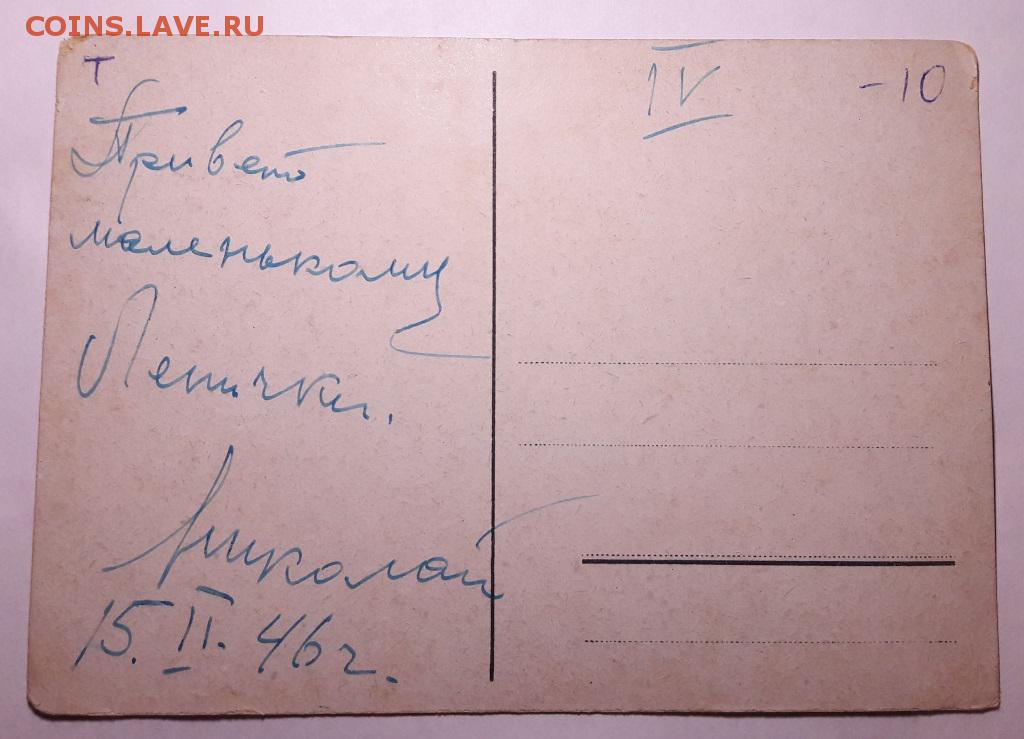 COINS.LAVE.RU
т
IV
-10
Привет
маленькому
Ленички.
Николай
15.II.46г.